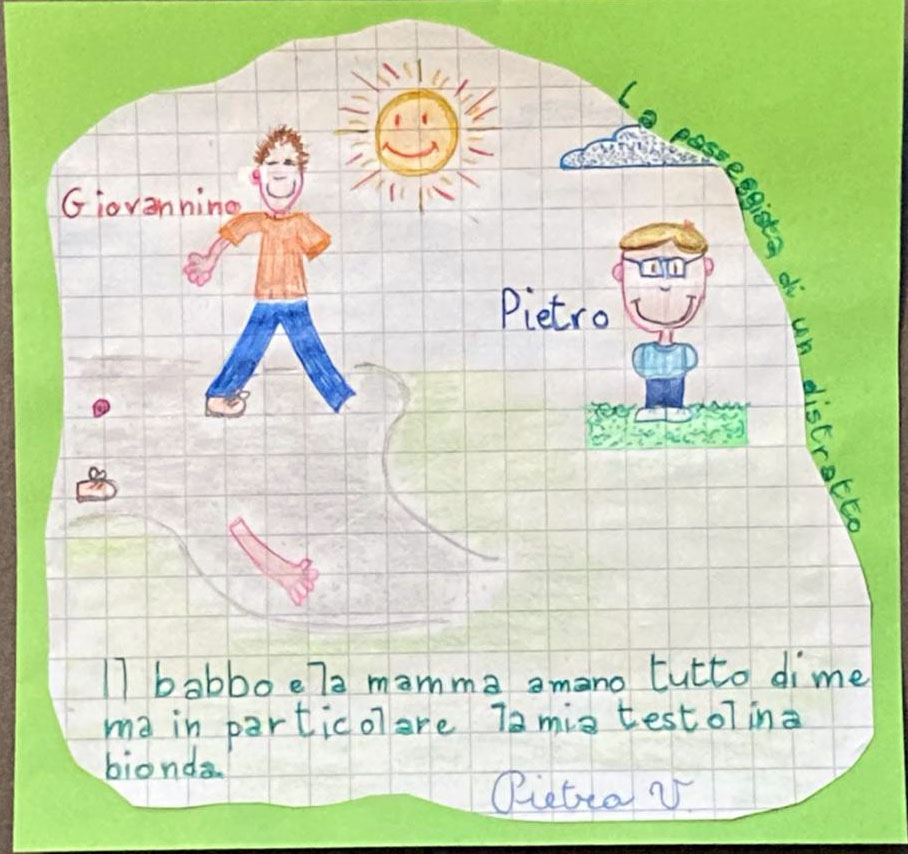 La passeggiata di un distratto
Giovannino
Pietro
Il babbo e la mamma amano tutto di me
ma in particolare la mia testolina
bionda.
Pietro V.